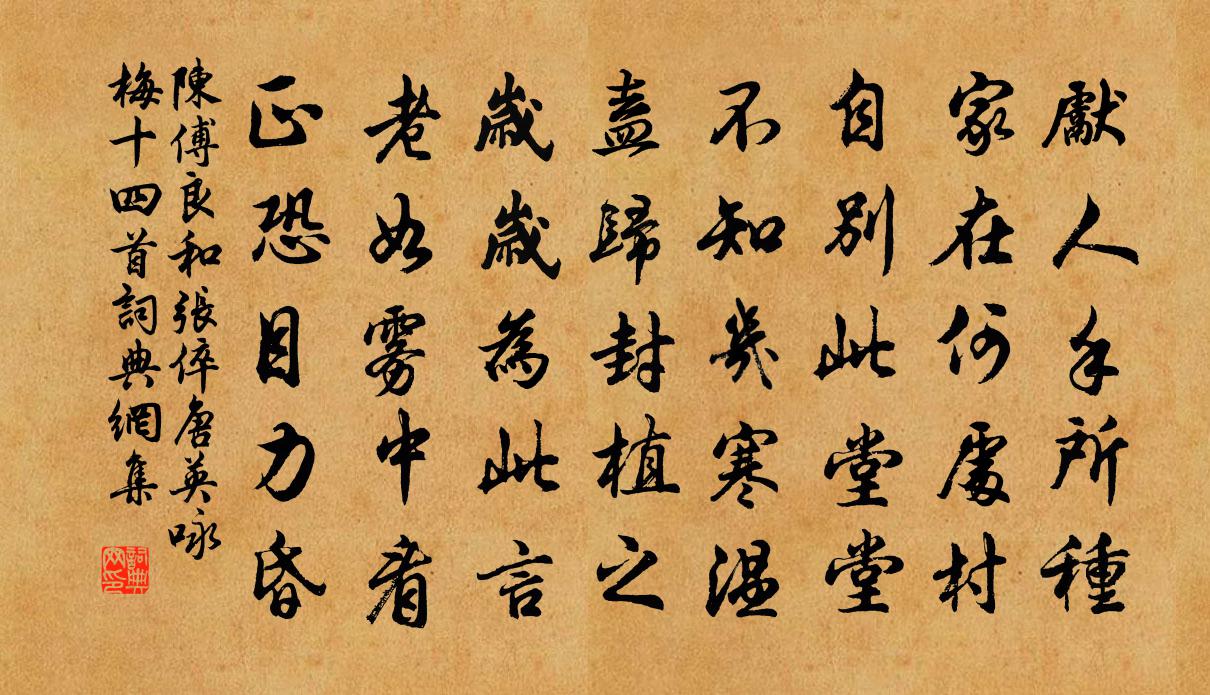 獻人手所種
家在何處村
自別此堂堂
不知幾寒溫
盍歸封植之
歲歲為此言
老如霧中看
正恐目力昏
陳傅良和張倅唐英咏
梅十四首詞典網集
詞典
网印